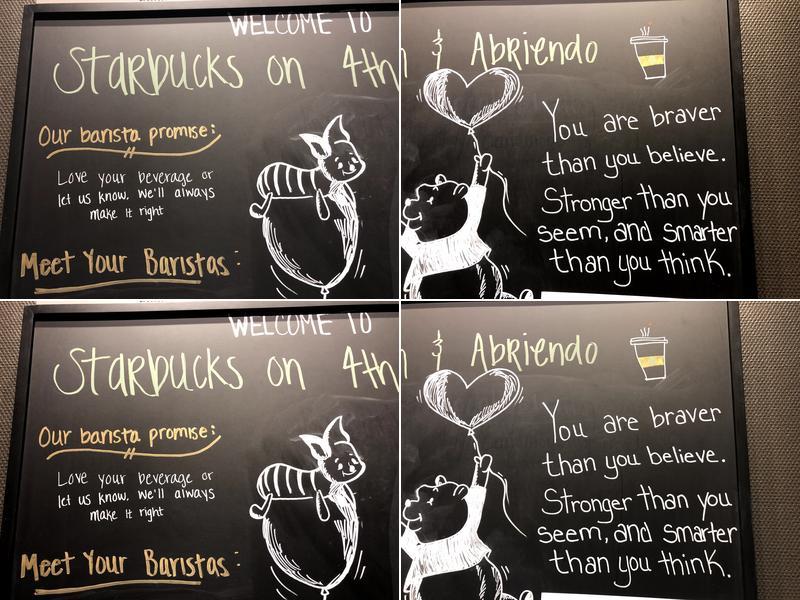 WELCOME TO
Starbucks on 4th
Our barista promise:
Love your beverage or
let us know. We'll always
make it right
Meet Your Baristas:
& Abriendo
You are braver
than you believe.
Stronger than you
seem, and smarter
than you think.
WELCOME TO
Starbucks on 4th
Our barista promise:
Love your beverage or
let us know. We'll always
make it right
Meet Your Baristas:
& Abriendo
You are braver
than you believe.
Stronger than you
seem, and smarter
than you think.